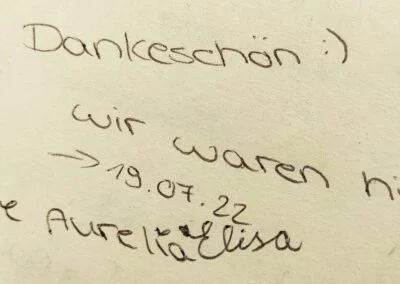 Dankeschön :)
wir waren hi
→ 19.07.22
e Aurelia & Elisa